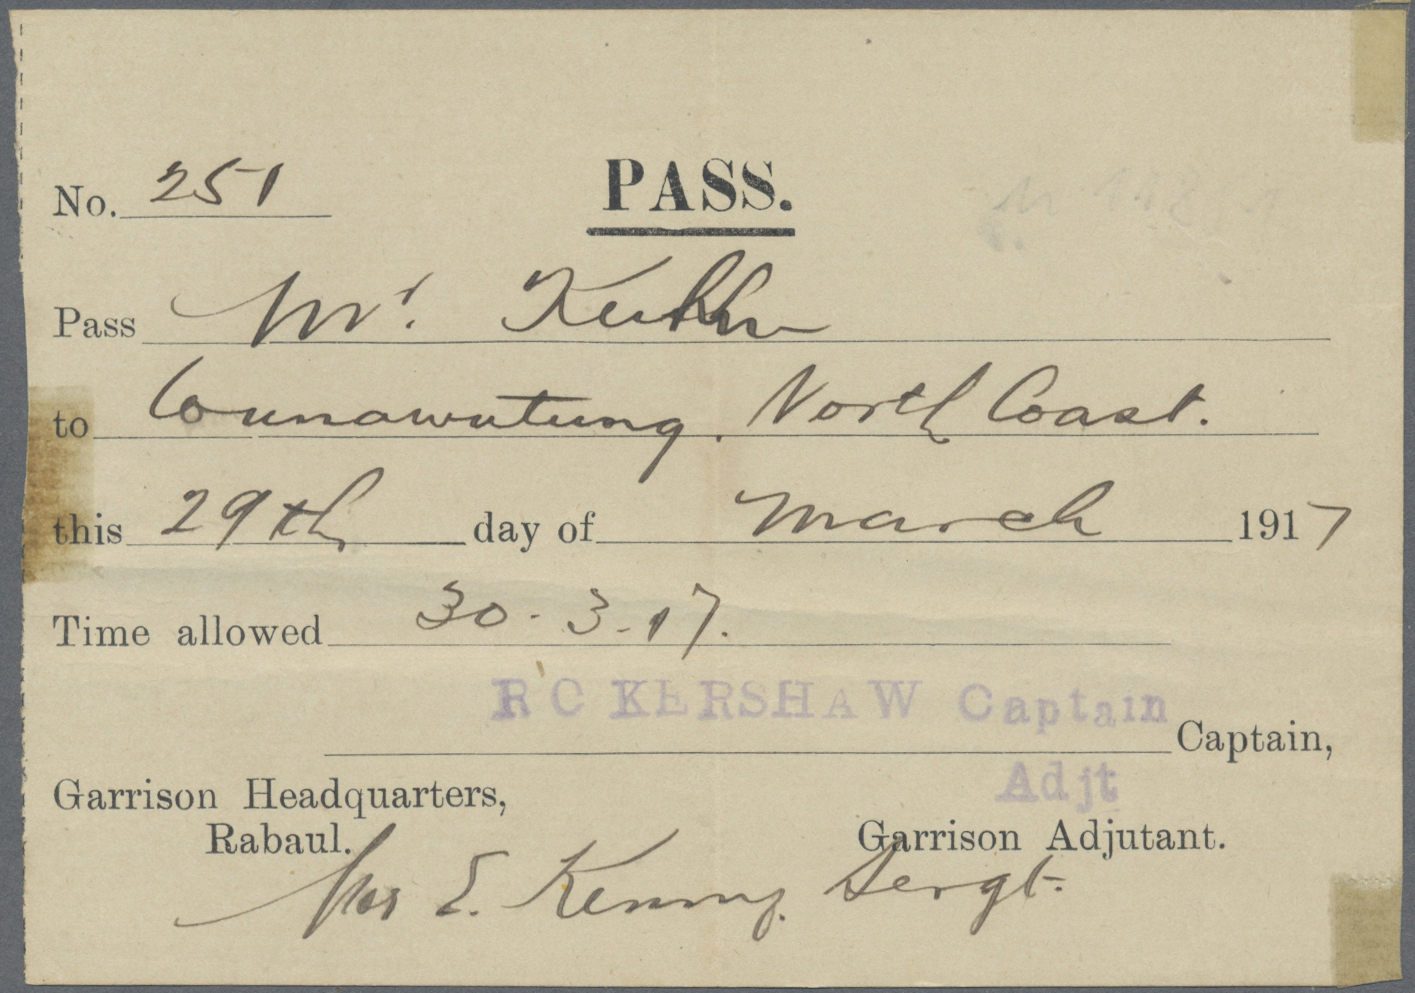 No. 251
PASS.
Pass Mr. Kuhn
to Wunawutung. North Coast.
this 29th day of March 1917
Time allowed 30-3-17.
R C KERSHAW Captain
Captain,
Adjt
Garrison Headquarters,
Rabaul.
Garrison Adjutant.
per E. Kenny. Sergt.